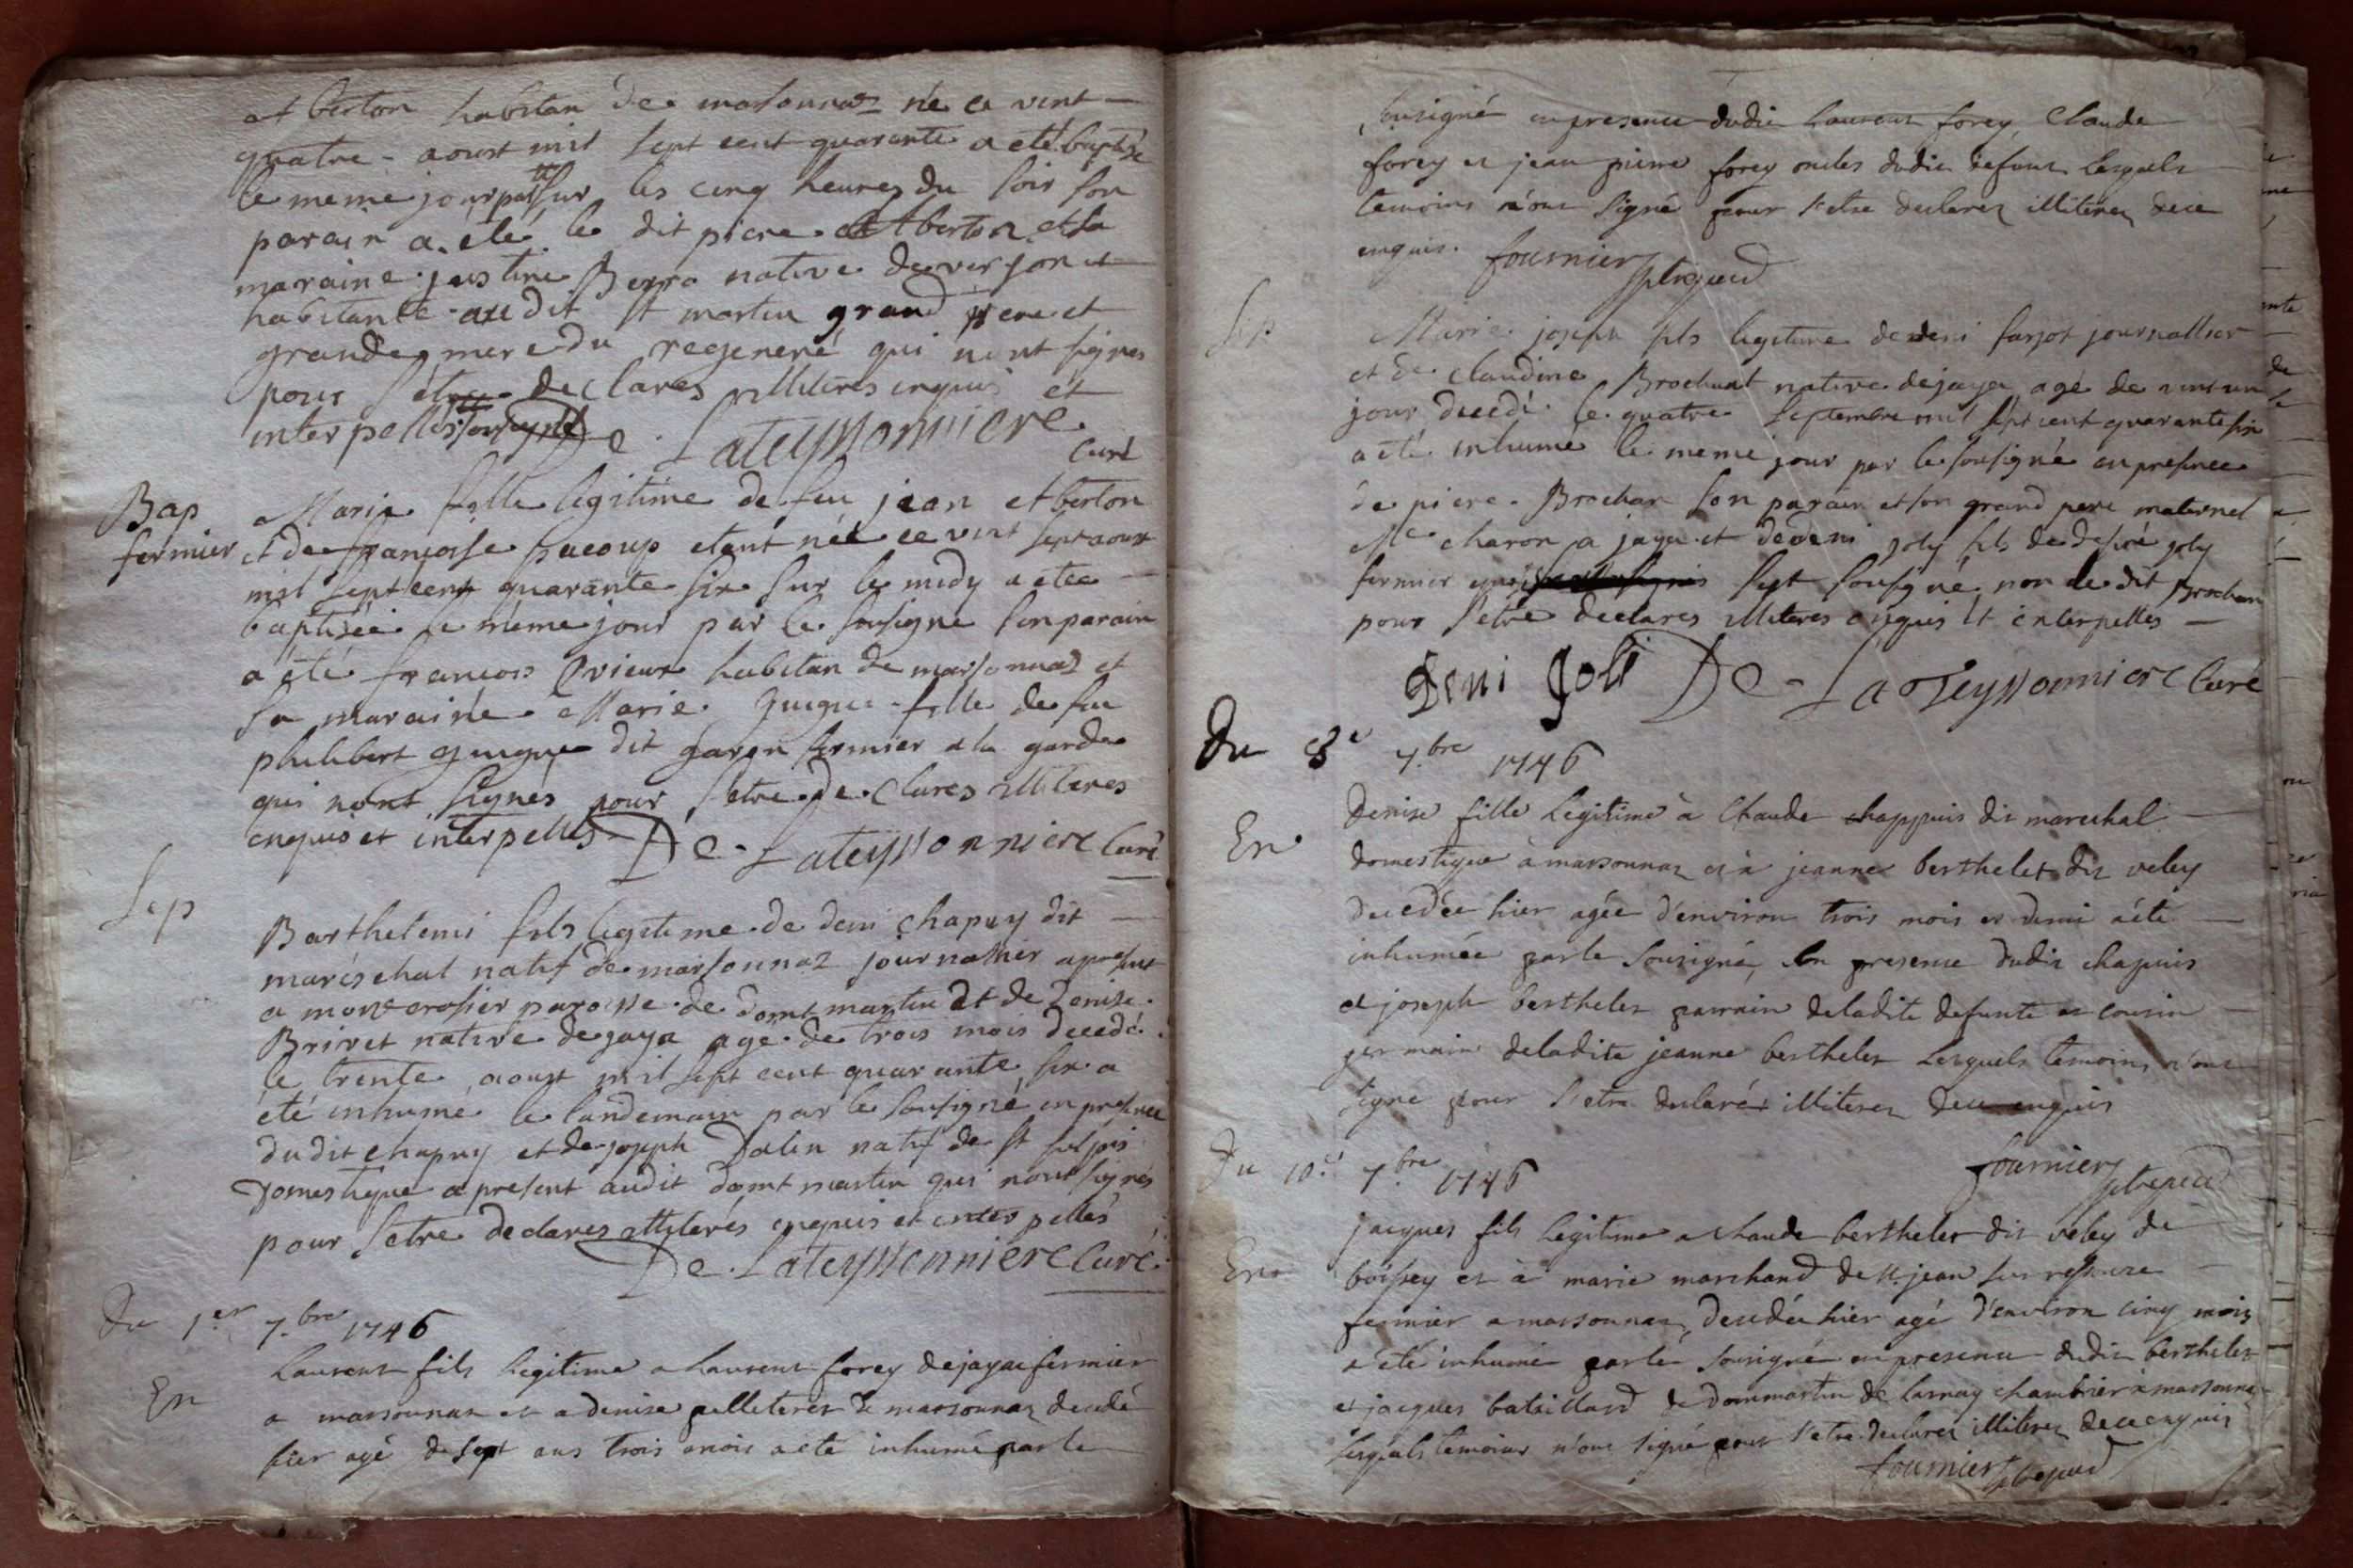 et berton habitan de marsonnaz né ce vint
quatre aoust mil sept cent quarante a eté baptisé
le meme jour sur les cinq heures du soir son
parain a été le dit piere Et berton et sa
maraine justine Berra native de verjon et
habitante audit st martin grand pere et
grande mere du regeneré qui nont signes
pour être declares illiteres enquis et
interpelles De Lateyssonniere
curé
Bap
fermier
Marie fille legitime de feu jean et berton
et de francoise pacoup etant née ce vint sept aoust
mil sept cent quarante six sur le midy a etee
baptisée le méme jour par le sousigne son parain
a été francois Cvieux habitan de marsonnaz et
sa maraine Marie guigue fille de feu
philibert guigue dit garon fermier a la garde
qui nont signés pour s'etre declares illiteres
enquis et interpelles De Lateyssonniere Curé
Sep
Barthelemi fils legitime de deni chapuy dit
maréschal natif de marsonnaz journalier apresent
a montcrosier paroisse de domt martin et de Denise
Brivet native de jaya age de trois mois decedé
le trente aoust mil sept cent quarante six a
été inhumé le landemain par le sousigné en presence
dudit chapuy et de joseph Dalin natif de st sulpis
Domestique a present audit domt martin qui nont signés
pour s'etre declares illiterés enquis et interpellés
De Lateyssonniere Curé
Du 1er 7.bre 1746
En
Laurent fils legitime a Laurent forey de jaya fermier
a marsonnas et a denise pelleteret de marsonnaz decedé
hier agé de sept ans trois mois a eté inhumé par le
sousigné en presence dudit Laurent forey Claude
forey et jean pierre forey oncles dudit defunt lesquels
temoins n'ont signé pour s'etre declarez illiterez de ce
enquis. fournier
Sep
Marie joseph fils legitime de deni farjot journallier
et de claudine Brochat native de jaya agé de vint un
jour decedé le quatre septembre mil sept cent quarante six
a été inhumé le meme jour par le sousigné en presence
de piere Brochar son parain et son grand pere maternel
Me charon a jaya et de deni joly fils de desiré joly
fermier sest sousigné non le dit Brochar
pour s'etre declares illiteres enquis et interpelles
Deni Joli De Lateyssonniere Curé
Du 8e 7.bre 1746
En
Denise fille legitime à Claude chappuis dit mareschal
domestique à marsonnaz et à jeanne berthelet dit veley
decedée hier agée d'environ trois mois et demi a été
inhumée par le sousigné, en presence dudit chapuis
et joseph berthelet parrain de ladite defunte et cousin
germain de ladite jeanne berthelet lesquels temoins n'ont
signe pour s'etre declaréz illiterez de ce enquis
fournier
Du 10e 7bre 1746
En
jacques fils legitime a Claude berthelet dit veley de
boissey et à marie marchand de st jean sur ressouze
fermier a marsonnaz, decedé hier agé d'environ cinq mois
a été inhumé par le sousigné en presence dudit berthelet
et jacques bataillard de dommartin de Larnay chambrier à marsonnaz
lesquels temoins n'ont signé pour s'etre declarez illiterez de ce enquis
fournier